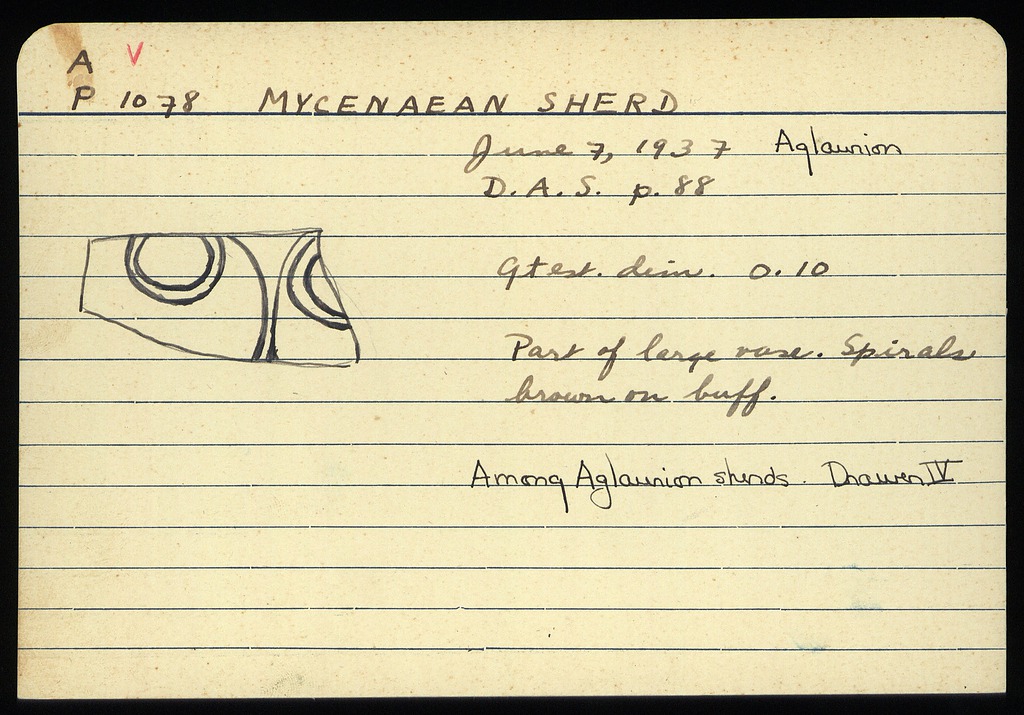 A V
P 1078 MYCENAEAN SHERD
June 7, 1937 Aglaurion
D.A.S. p. 88
Gtest. dim. 0.10
Part of large vase. Spirals
brown on buff.
Among Aglaurion sherds. Drawer IV